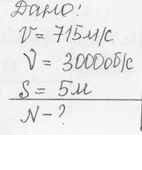 Дано:
V = 715 м/с
ν = 3000 об/с
S = 5 м
N – ?